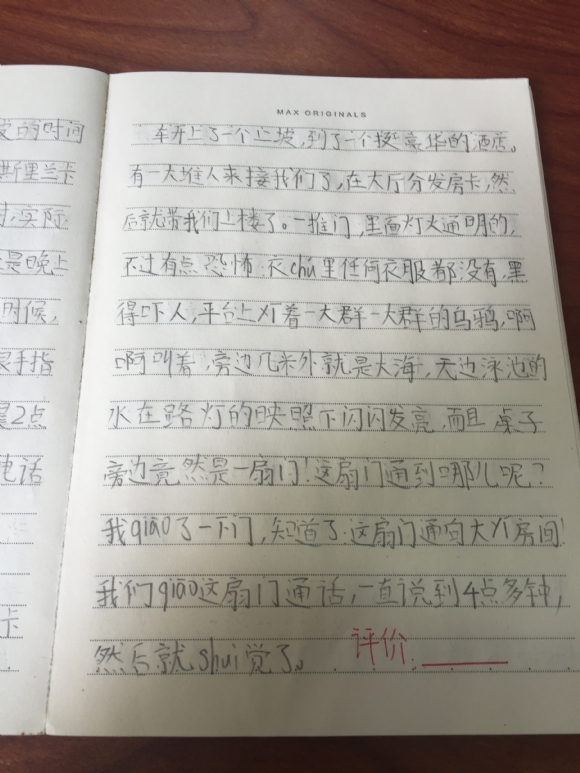 MAX ORIGINALS
的时间
斯里兰卡
实际
是晚上
时候，
手指
2点
电话
卡
车开上了一个上坡，到了一个挺豪华的酒店。
有一大堆人来接我们了，在大厅分发房卡，然
后就带我们上楼了。一推门，里面灯火通明的，
不过有点恐怖：衣chú里任何衣服都没有，黑
得吓人，平台上对着一大群一大群的乌鸦，啊
啊叫着，旁边几米外就是大海，无边泳池的
水在路灯的映照下闪闪发亮，而且桌子
旁边竟然是一扇门！这扇门通到哪儿呢？
我qiāo了一下门，知道了：这扇门通向大 房间！
我们qiāo这扇门通话，一直说到4点多钟，
然后就shuì觉了。
评价